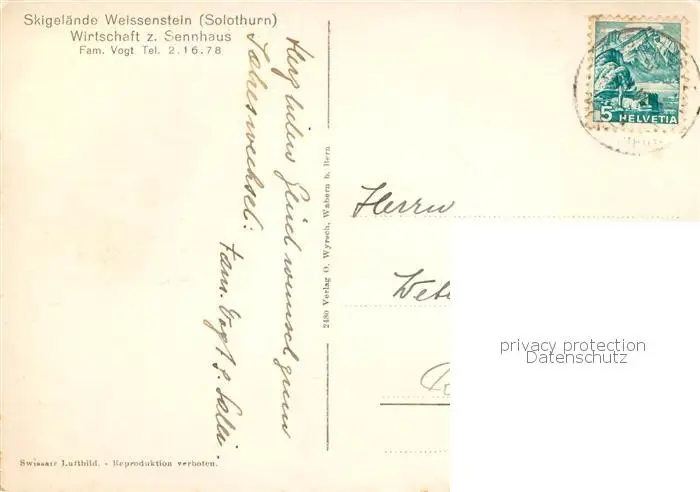 Skigelände Weissenstein (Solothurn)
Wirtschaft z. Sennhaus
Fam. Vogt Tel. 2.16.78
Herzlichen Glückwunsch zum
Jahreswechsel:
Fam. Vogt s. 
2480 Verlag O. Wyrsch, Wabern b. Bern
5 HELVETIA
Herrn
privacy protection
Datenschutz
Swissair Luftbild. - Reproduktion verboten.